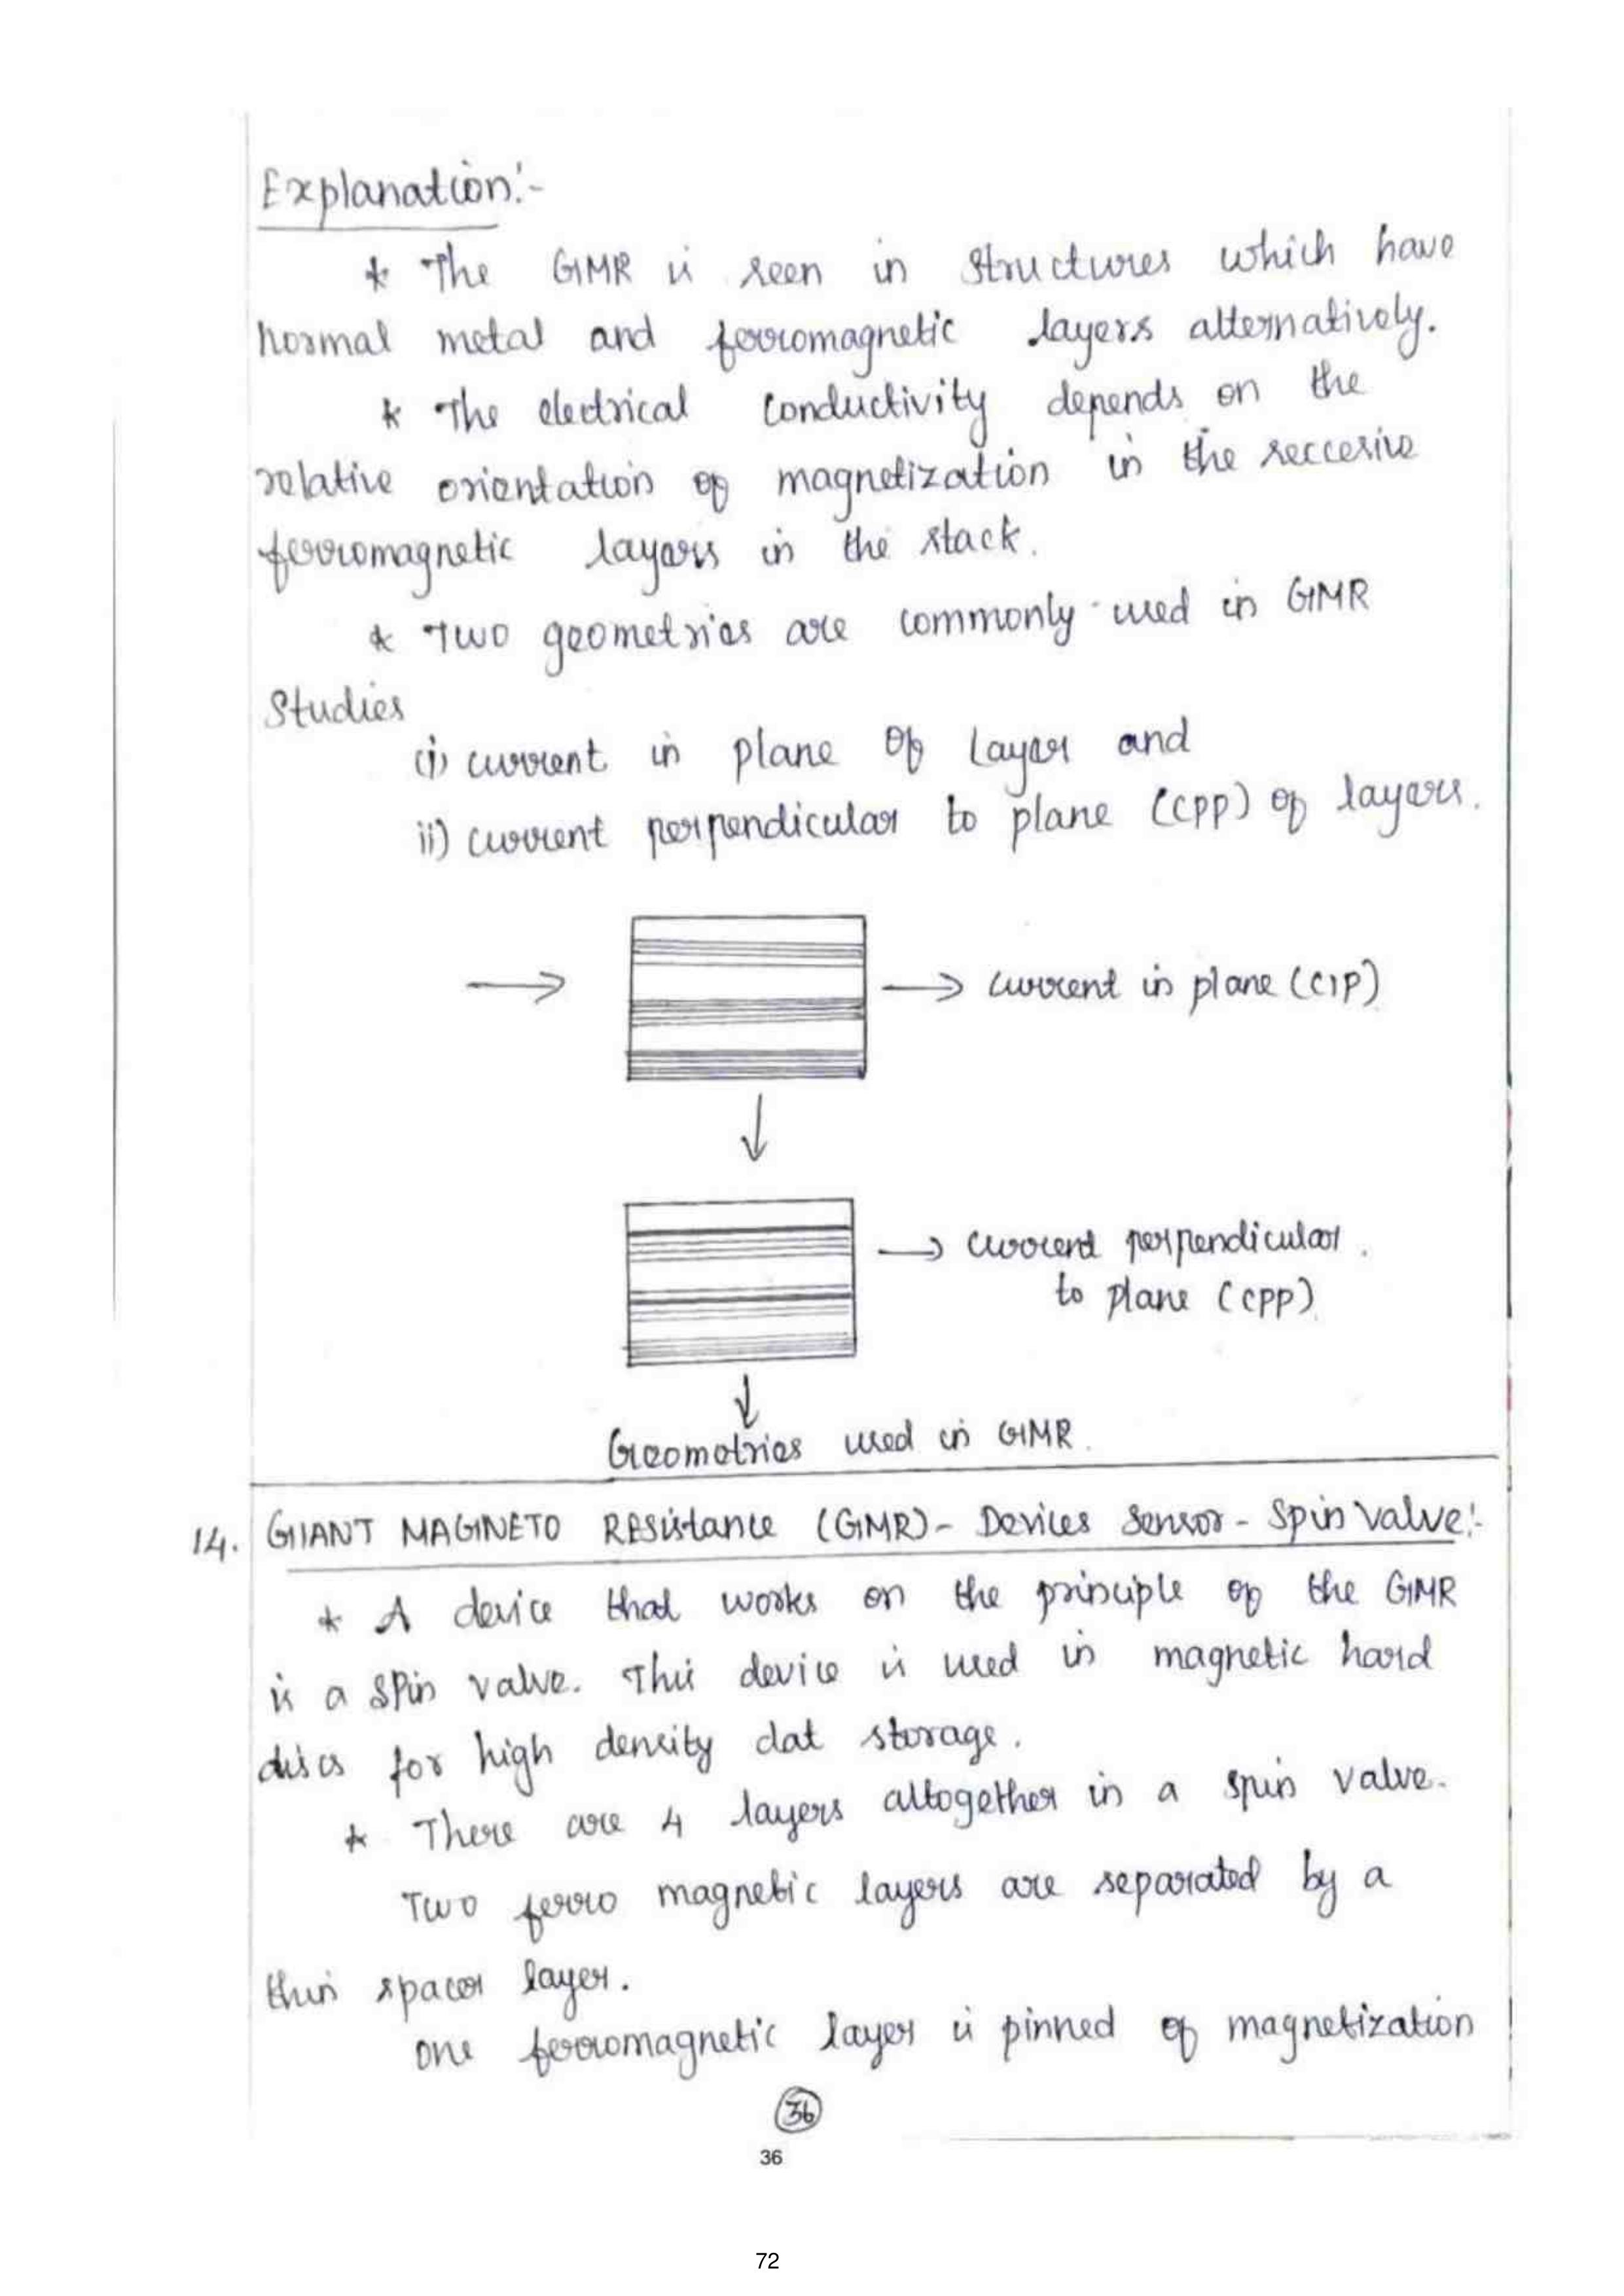 Explanation:-
* The GMR is seen in structures which have
normal metal and ferromagnetic layers alternatively.
* The electrical conductivity depends on the
relative orientation of magnetization in the seccesive
ferromagnetic layers in the stack.
* Two geometries are commonly used in GMR
Studies
(i) current in plane of Layer and
ii) current perpendicular to plane (CPP) of layers.
→ → current in plane (CIP)
↓
→ current perpendicular
to plane (CPP)
↓
Geometries used in GMR.
14. GIANT MAGNETO RESistance (GMR)- Devices Sensor - Spin Valve:-
* A device that works on the principle of the GMR
is a spin valve. This device is used in magnetic hard
discs for high density dat storage.
* There are 4 layers altogether in a spin valve.
Two ferro magnetic layers are separated by a
thin spacer layer.
one ferromagnetic layer is pinned of magnetization
36
36
72